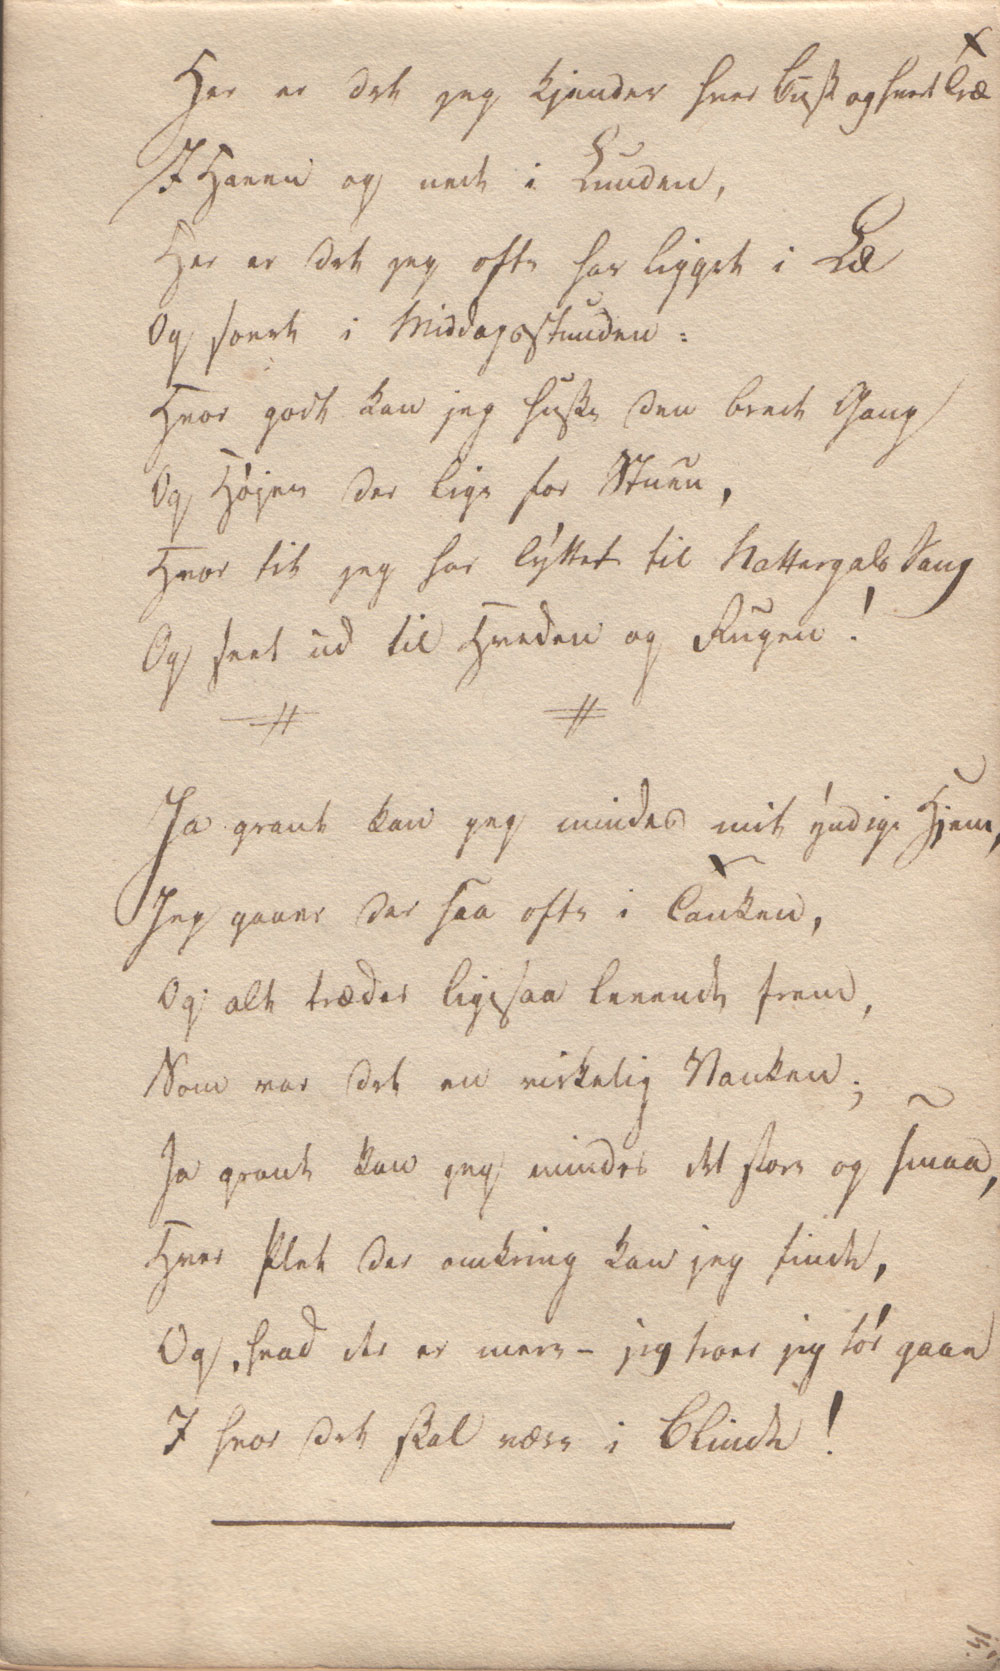 Her er det jeg kjender hver Busk og hvert Træ
I Haven og nede i Lunden,
Her er det jeg ofte har ligget i Læ
Og sovet i Middagsstunden:
Hvor godt kan jeg huske den brede Gang
Og Højen der lige for Stuen,
Hvor tit jeg har lyttet til Nattergals Sang
Og seet ud til Hveden og Rugen!
Ja grant kan jeg mindes mit yndige Hjem,
Jeg gaaer der saa ofte i Tanken,
Og alt træder ligesaa levende frem,
Som var det en virkelig Vanken;
Ja grant kan jeg mindes det store og smaa,
Hver Plet der omkring kan jeg finde,
Og, hvad der er mere – jeg troer jeg tør gaae
I hvor det skal være i Blinde!